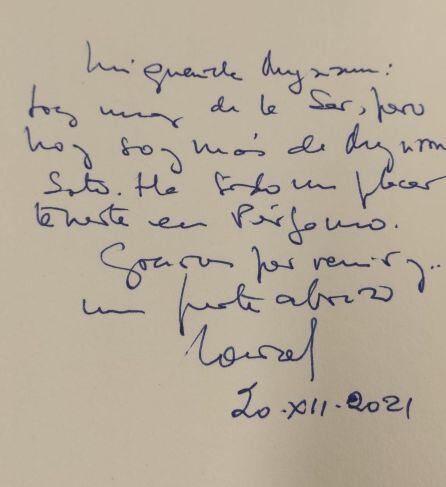 Mi querida
Soy muy de la Ser, pero
hoy soy más de
Soto. Ha sido un placer
tenerte en Pérgamo.
Gracias por venir y..
un fuerte abrazo
20-XII-2021